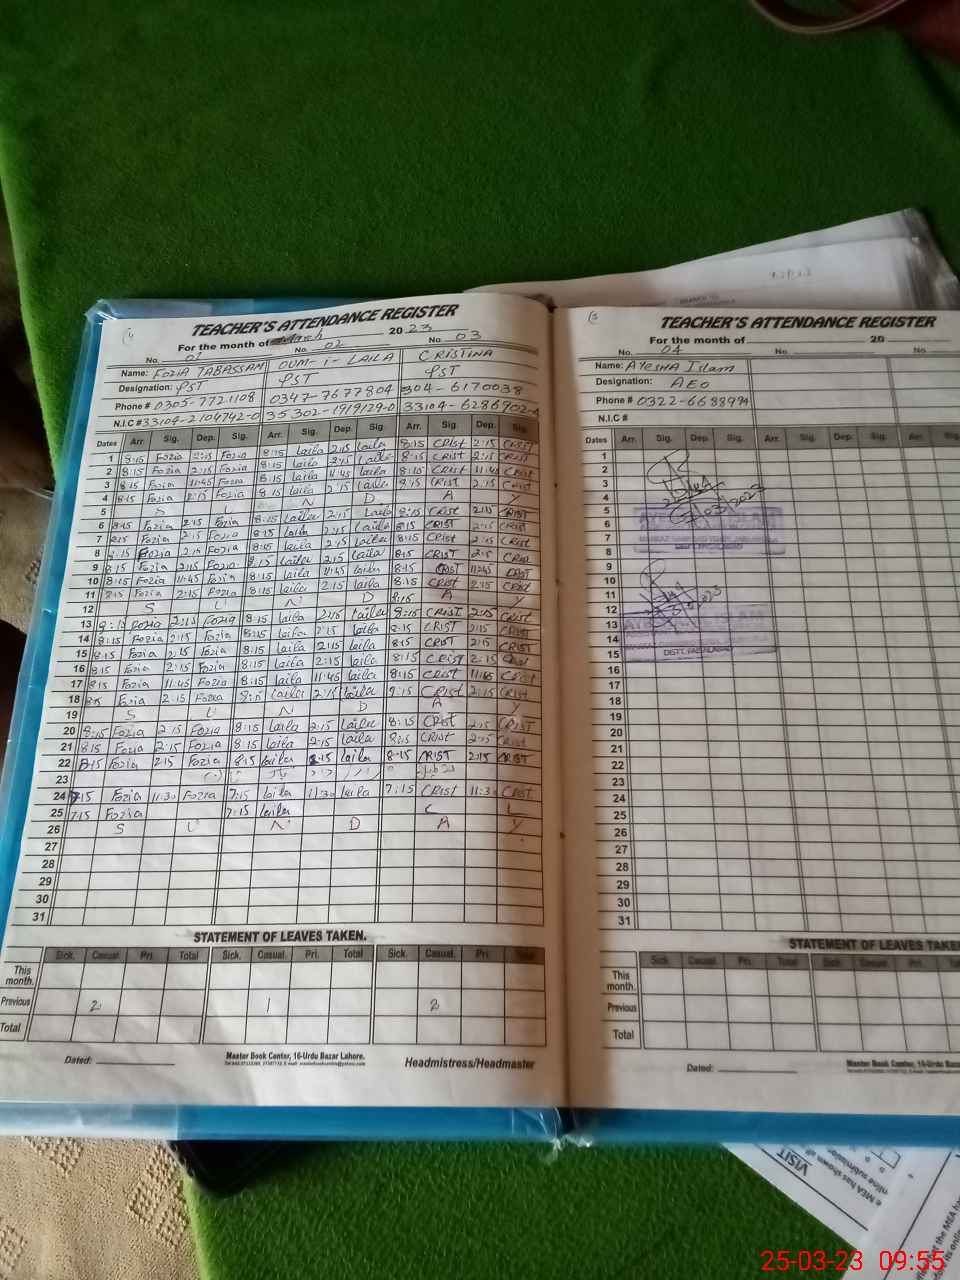 TEACHER'S ATTENDANCE REGISTER
For the month of March 20 23
No. 01 No. 02 No. 03
Name: FOZIA TABASSAM OUM-I-LAILA CRISTINA
Designation: PST PST PST
Phone # 0305-7721108 0347-7677804 304-6170038
N.I.C # 33104-2104742-0 35302-1919129-0 33104-6286902-
Dates Arr. Sig. Dep. Sig. Arr. Sig. Dep. Sig. Arr. Sig. Dep. Sig.
1 8:15 Fozia 2:15 Fozia 8:15 laila 2:15 laila 8:15 CRIST 2:15 CRIST
2 8:15 Fozia 2:15 Fozia 8:15 laila 2:15 laila 8:15 CRIST 2:15 CRIST
3 8:15 Fozia 11:45 Fozia 8:15 laila 11:45 laila 8:15 CRIST 11:45 CRIST
4 8:15 Fozia 2:15 Fozia 8:15 laila 2:15 laila 8:15 CRIST 2:15 CRIST
5 S U N D A Y
6 8:15 Fozia 2:15 Fozia 8:15 laila 2:15 laila 8:15 CRIST 2:15 CRIST
7 8:15 Fozia 2:15 Fozia 8:15 laila 2:45 laila 8:15 CRIST 2:15 CRIST
8 8:15 Fozia 2:15 Fozia 8:15 laila 2:15 laila 8:15 CRIST 2:15 CRIST
9 8:15 Fozia 2:15 Fozia 8:15 laila 2:15 laila 8:15 CRIST 2:15 CRIST
10 8:15 Fozia 11:45 Fozia 8:15 laila 11:45 laila 8:15 CRIST 11:45 CRIST
11 8:15 Fozia 2:15 Fozia 8:15 laila 2:15 laila 8:15 CRIST 2:15 CRIST
12 S U N D 8:15 A Y
13 8:15 Fozia 2:15 Fozia 8:15 laila 2:15 laila 8:15 CRIST 2:15 CRIST
14 8:15 Fozia 2:15 Fozia 8:15 laila 2:15 laila 8:15 CRIST 2:15 CRIST
15 8:15 Fozia 2:15 Fozia 8:15 laila 2:15 laila 8:15 CRIST 2:15 CRIST
16 8:15 Fozia 2:15 Fozia 8:15 laila 2:15 laila 8:15 CRIST 2:15 CRIST
17 8:15 Fozia 11:45 Fozia 8:15 laila 11:45 laila 8:15 CRIST 11:45 CRIST
18 8:15 Fozia 2:15 Fozia 8:15 laila 2:15 laila 8:15 CRIST 2:15 CRIST
19 S U N D A Y
20 8:15 Fozia 2:15 Fozia 8:15 laila 2:15 laila 8:15 CRIST 2:15 CRIST
21 8:15 Fozia 2:15 Fozia 8:15 laila 2:15 laila 8:15 CRIST 2:15 CRIST
22 8:15 Fozia 2:15 Fozia 8:15 laila 2:15 laila 8:15 CRIST 2:15 CRIST
23
24 7:15 Fozia 11:30 Fozia 7:15 laila 11:30 laila 7:15 CRIST 11:30 CRIST
25 7:15 Fozia 7:15 laila C L
26 S U N D A Y
27
28
29
30
31
STATEMENT OF LEAVES TAKEN.
Sick. Casual. Pri. Total Sick. Casual. Pri. Total Sick. Casual. Pri. Total
This month.
Previous 2 1 2
Total
Dated:
Master Book Center, 16-Urdu Bazar Lahore.
Headmistress/Headmaster
5
TEACHER'S ATTENDANCE REGISTER
For the month of 20
No. 04 No. No.
Name: AYesHA Islam
Designation: AEO
Phone # 0322-6688994
N.I.C #
Dates Arr. Sig. Dep. Sig. Arr. Sig. Dep. Sig. Arr. Sig.
1
2
3
4
5
6
7
8
9
10
11
12
13
14
15
16
17
18
19
20
21
22
23
24
25
26
27
28
29
30
31
DISTT. FAISALABAD
STATEMENT OF LEAVES TAKEN
Sick. Casual. Pri. Total Sick. Casual. Pri. Total Sick.
This month.
Previous
Total
Dated:
Master Book Center, 16-Urdu Bazar
VISIT
25-03-23 09:55